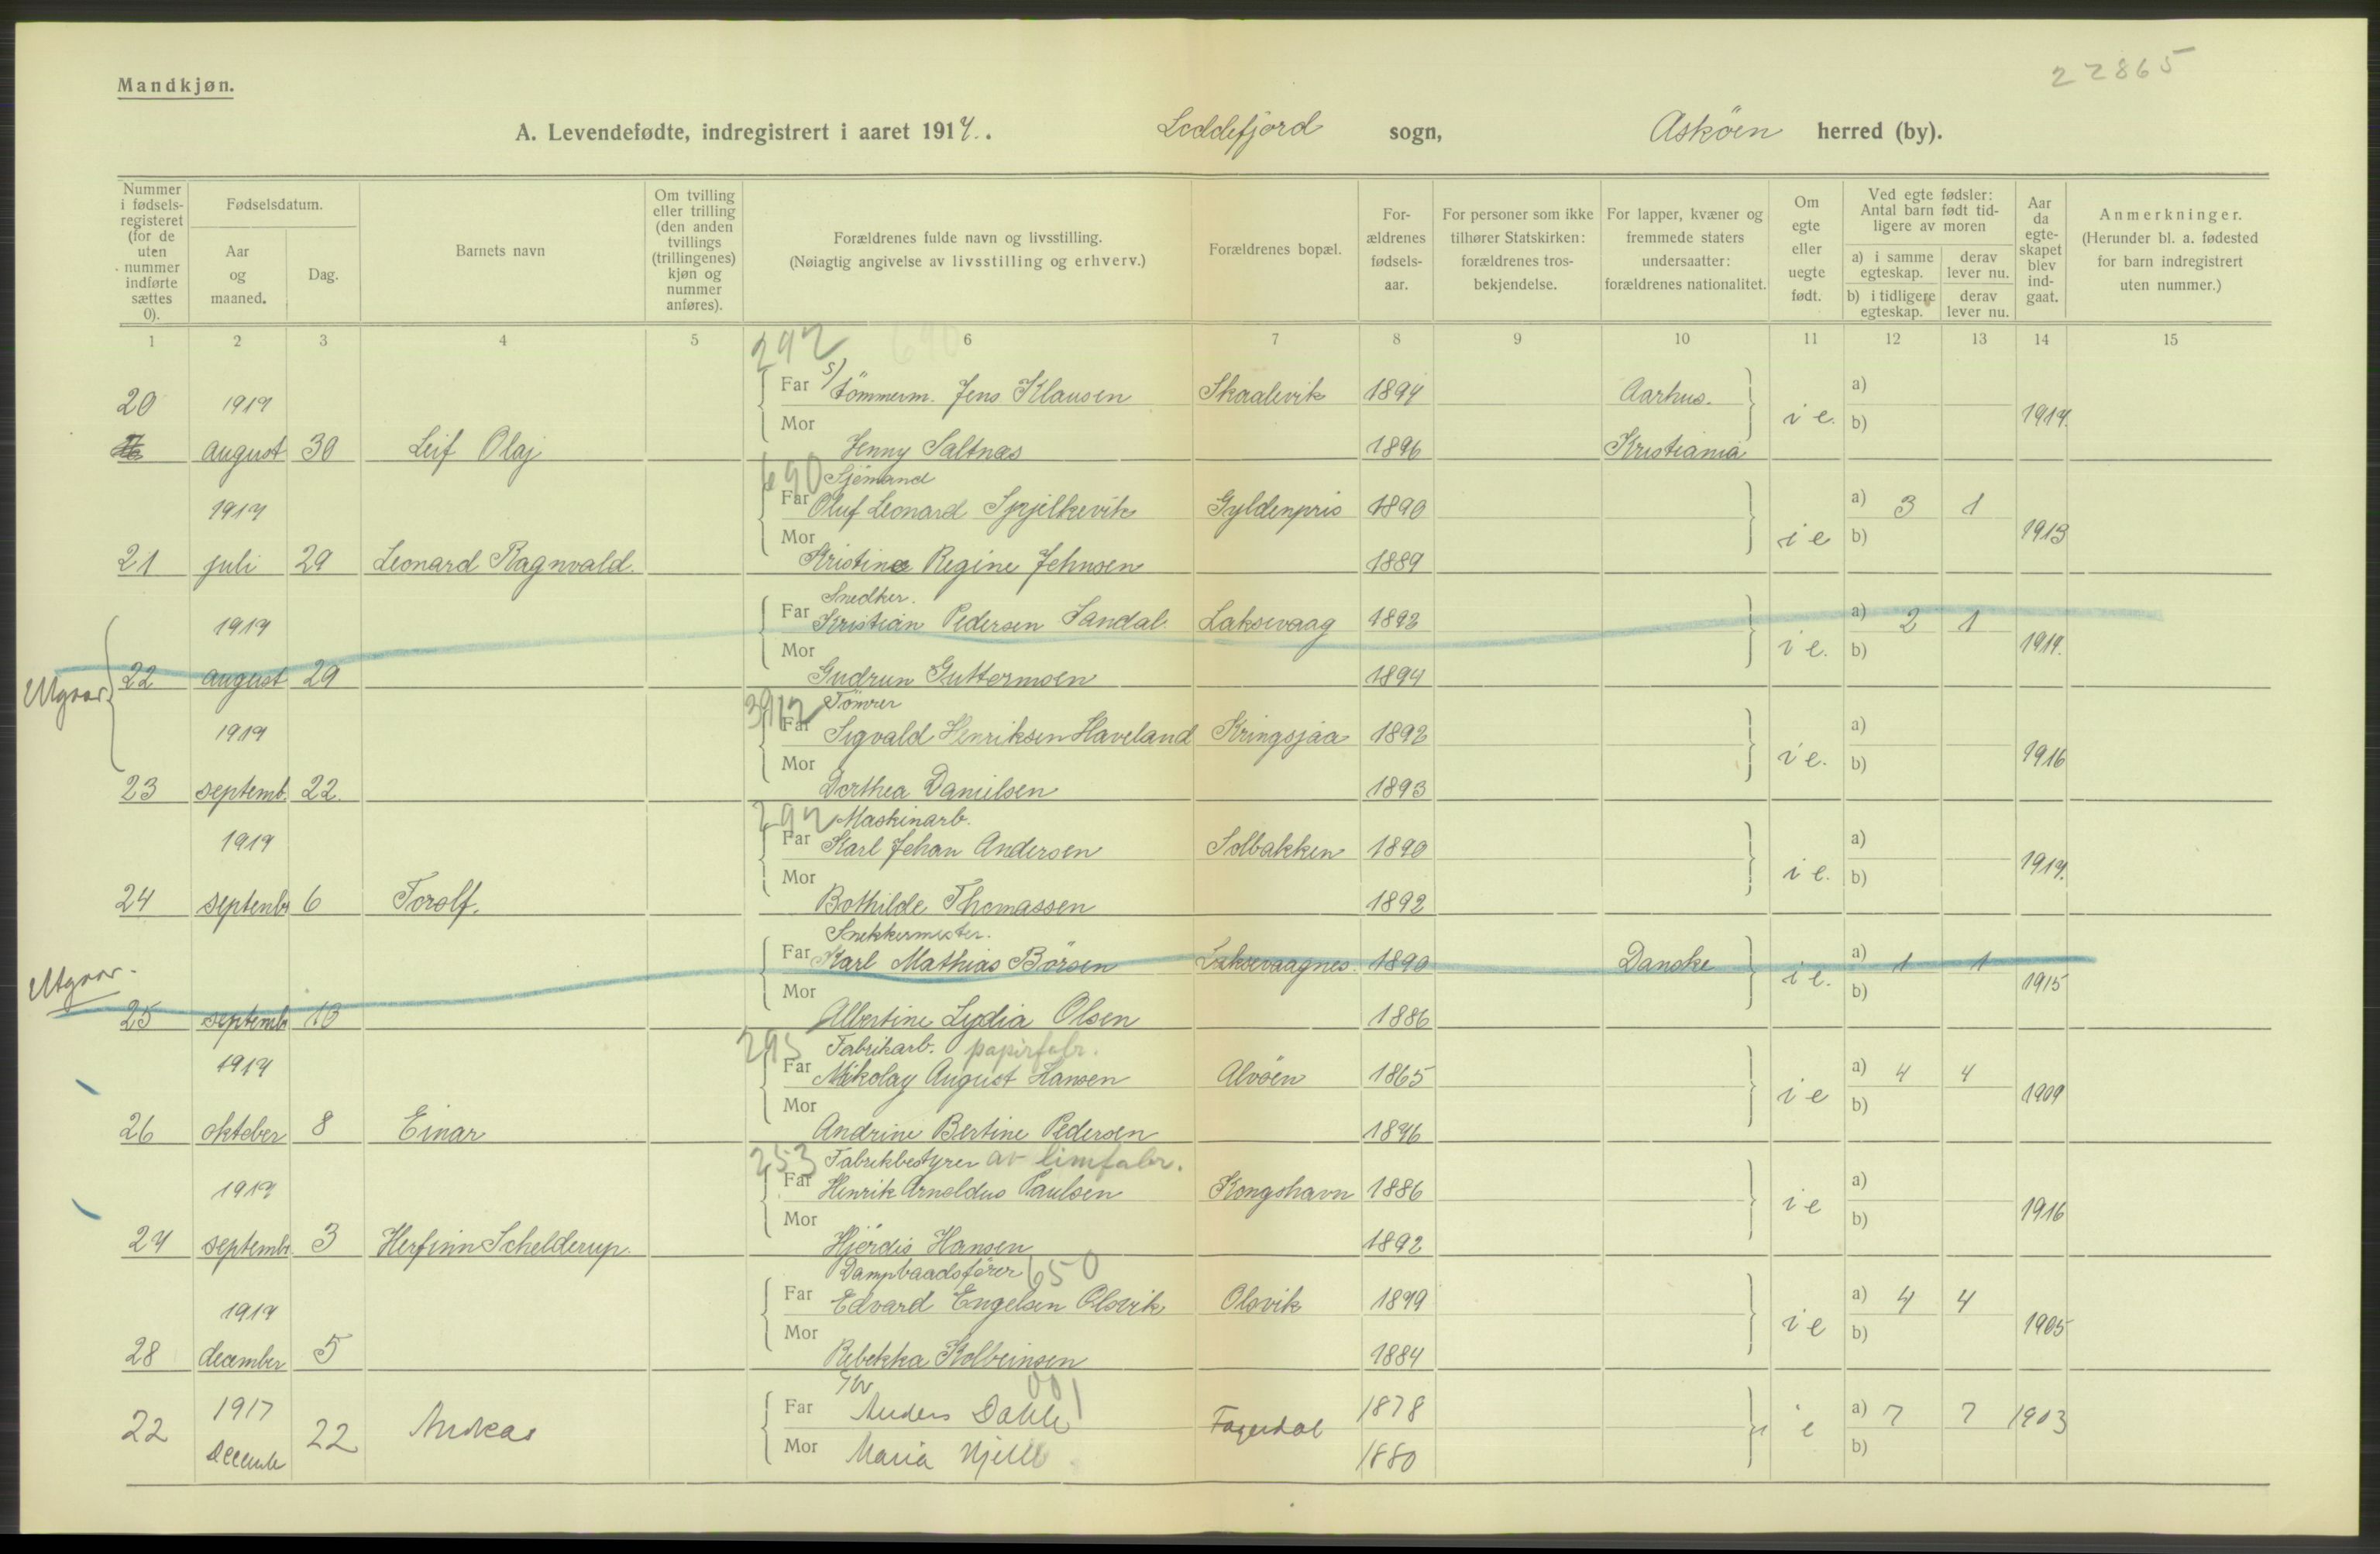 22865
Mandkjøn.
A. Levendefødte, indregistrert i aaret 1917. Loddefjord sogn, Askøen herred (by).
Nummer i fødselsregisteret (for de uten nummer indførte sættes 0).
Fødselsdatum.
Aar og maaned.
Dag.
Barnets navn
Om tvilling eller trilling (den anden tvillings (trillingenes) kjøn og nummer anføres).
Forældrenes fulde navn og livsstilling.
(Nøiagtig angivelse av livsstilling og erhverv.)
Forældrenes bopæl.
For-ældrenes fødsels-aar.
For personer som ikke tilhører Statskirken: forældrenes tros-bekjendelse.
For lapper, kvæner og fremmede staters undersaatter: forældrenes nationalitet.
Om egte eller uegte født.
Ved egte fødsler: Antal barn født tid-ligere av moren
a) i samme egteskap. derav lever nu.
b) i tidligere egteskap. derav lever nu.
Aar da egte-skapet blev ind-gaat.
Anmerkninger.
(Herunder bl. a. fødested for barn indregistrert uten nummer.)
1 2 3 4 5 6 7 8 9 10 11 12 13 14 15
297 690
20 1917 Far Tömmerm. Jens Klausen Skaalevik 1894 Aarhus. i e. a) 1917.
august 30 Leif Olaf Mor Jenny Saltnæs 1896 Kristiania b)
690 Sjömand
1917 Far Oluf Leonard Spjelkevik Gyldenpris 1890 i e a) 3 1 1913
21 juli 29 Leonard Ragnvald. Mor Kristine Regine Johnsen 1889 b)
Snedker.
1917 Far Kristian Pedersen Sandal Laksevaag 1892 i e. a) 2 1 1917.
Utgaar. 22 august 29 Mor Gudrun Guttormsen 1894 b)
Tömrer
1917 Far Sigvald Henriksen Haveland Kringsjaa 1892 i e. a) 1916
23 septemb. 22. Mor Dorthea Danielsen 1893 b)
297 Maskinarb.
1917 Far Karl Johan Andersen Solbakken 1890 i e. a) 1917.
24 septembr 6 Torolf. Mor Bothilde Thomassen 1892 b)
Snekkermester.
Utgaar. Far Karl Mathias Börsen Laksevaagnes. 1890 Danske i e. a) 1 1 1915
25 septembr 13 Mor Albertine Lydia Olsen 1886 b)
295 Fabrikarb. papirfabr.
1917 Far Nikolay August Hansen Alvöen 1865 i e a) 4 4 1909
26 oktober 8 Einar Mor Andrine Bertine Pedersen 1876 b)
253 Fabrikbestyrer av limfabr.
1917 Far Henrik Arnoldus Paulsen Kongshavn 1886 i e a) 1916
27 septembr. 3 Herfinn Schelderup. Mor Hjördis Hansen 1892 b)
Dampbaadsförer 650
1917 Far Edvard Engelsen Olsvik Olsvik 1879 i e a) 4 4 1905
28 december 5 Mor Rebekka Kolbeinsen 1884 b)
001
1917 Far Anders Dahle Fagerdal 1878 i e a) 7 7 1903
22 December 22 Andreas Mor Maria 1880 b)